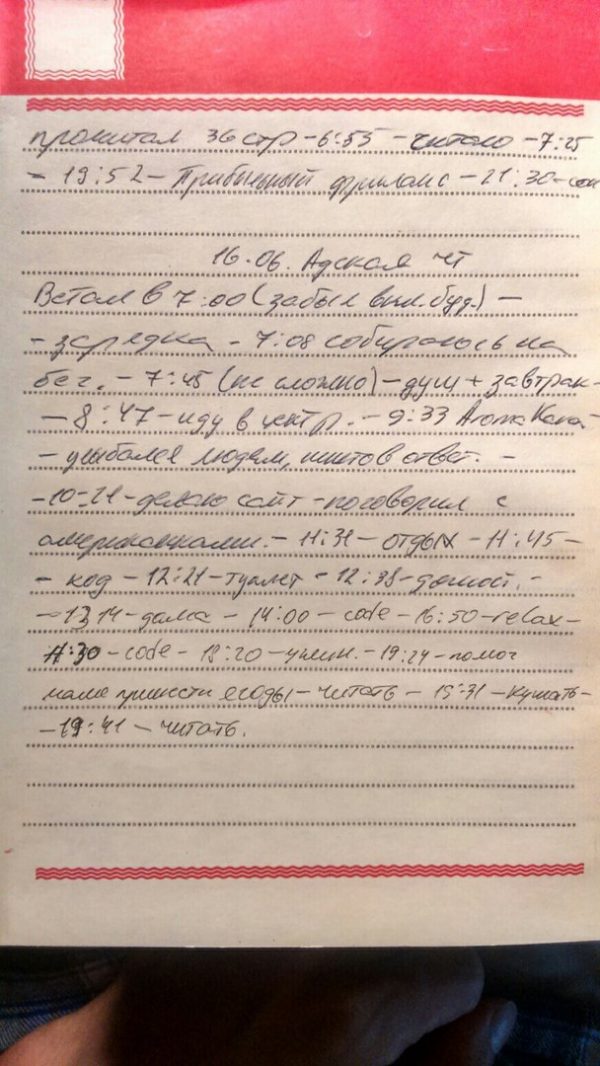 прочитал 36 стр – 6:55 – читаю – 7:25
– 19:52 – Прибыльный фриланс – 21:30 – сон
16.06. Адская чт
Встал в 7:00 (забыл вкл. буд.) –
– зарядка – 7:08 собираюсь на
бег. – 7:45 (не сложно) – душ + завтрак –
– 8:47 – иду в центр. – 9:33 Aroma Kava –
– улыбался людям, в ответ. –
– 10:21 – делаю сайт – поговорил с
американками. – 11:31 – отдых – 11:45 –
– код – 12:21 – туалет – 12:38 – домой. –
– 13 14 – дома – 14:00 – code – 16:50 – relax –
17:30 – code – 18:20 – ужин. – 19:24 – помог
маме принести ягоды – читать – 19:31 – кушать –
– 19:41 – читать.